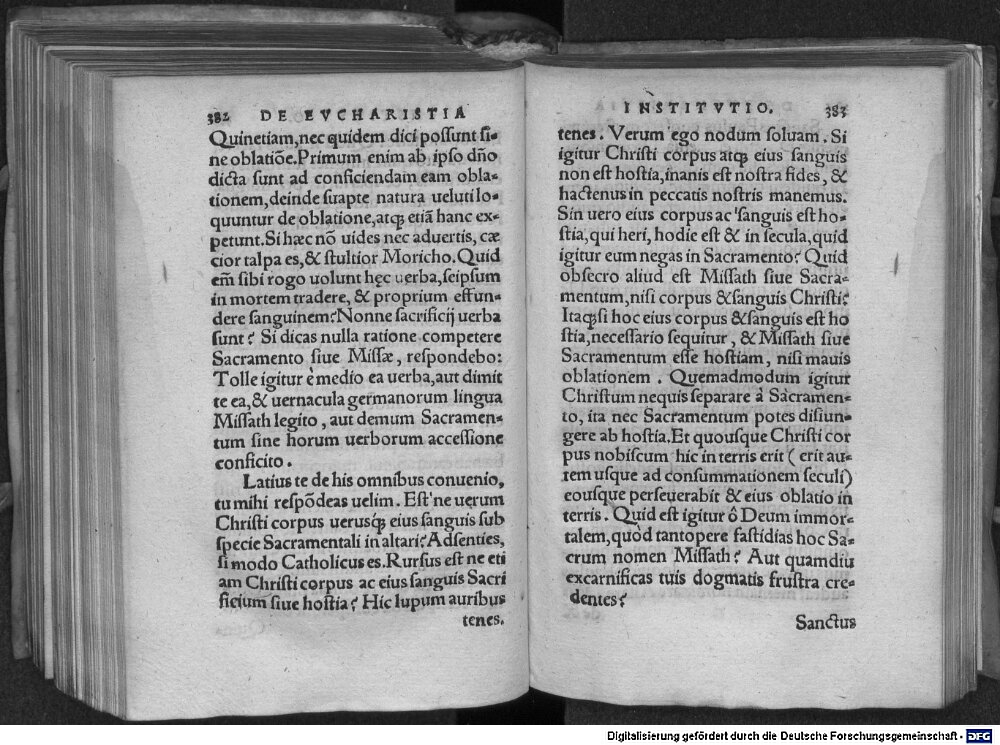 382 DE EVCHARISTIA
Quinetiam, nec quidem dici possunt si-
ne oblatiõe. Primum enim ab ipso dño
dicta sunt ad conficiendam eam obla-
tionem, deinde suapte natura ueluti lo-
quuntur de oblatione, atq; etiã hanc ex-
petunt. Si hæc nõ uides nec aduertis, cæ
cior talpa es, & stultior Moricho. Quid
em̃ sibi rogo uolunt hęc uerba, seipsum
in mortem tradere, & proprium effun-
dere sanguinem? Nonne sacrificij uerba
sunt? Si dicas nulla ratione competere
Sacramento siue Missæ, respondebo:
Tolle igitur è medio ea uerba, aut dimit
te ea, & uernacula germanorum lingua
Missath legito, aut demum Sacramen-
tum sine horum uerborum accessione
conficito.
Latius te de his omnibus conuenio,
tu mihi respõdeas uelim. Est'ne uerum
Christi corpus uerusq; eius sanguis sub
specie Sacramentali in altari? Adsenties,
si modo Catholicus es. Rursus est ne eti
am Christi corpus ac eius sanguis Sacri
ficium siue hostia? Hic lupum auribus
tenes.
INSTITVTIO. 383
tenes. Verum ego nodum soluam. Si
igitur Christi corpus atq; eius sanguis
non est hostia, inanis est nostra fides, &
hactenus in peccatis nostris manemus.
Sin uero eius corpus ac sanguis est ho-
stia, qui heri, hodie est & in secula, quid
igitur eum negas in Sacramento? Quid
obsecro aliud est Missath siue Sacra-
mentum, nisi corpus & sanguis Christi?
Itaq; si hoc eius corpus & sanguis est ho
stia, necessario sequitur, & Missath siue
Sacramentum esse hostiam, nisi mauis
oblationem. Quemadmodum igitur
Christum nequis separare à Sacramen-
to, ita nec Sacramentum potes disiun-
gere ab hostia. Et quousque Christi cor
pus nobiscum hic in terris erit (erit au-
tem usque ad consummationem seculi)
eousque perseuerabit & eius oblatio in
terris. Quid est igitur ô Deum immor-
talem, quòd tantopere fastidias hoc Sa-
crum nomen Missath? Aut quamdiu
excarnificas tuis dogmatis frustra cre-
dentes?
Sanctus
Digitalisierung gefördert durch die Deutsche Forschungsgemeinschaft - DFG